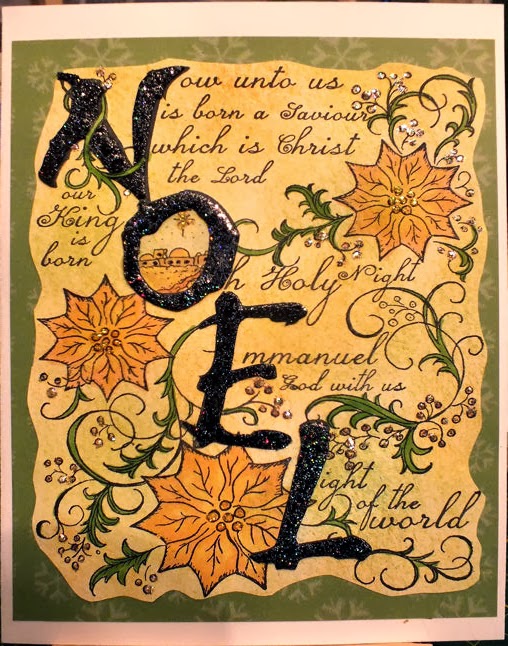 Now unto us
is born a Saviour
which is Christ
the Lord
our
King
is
born
Oh Holy Night
Emmanuel
God with us
Light
of the
world